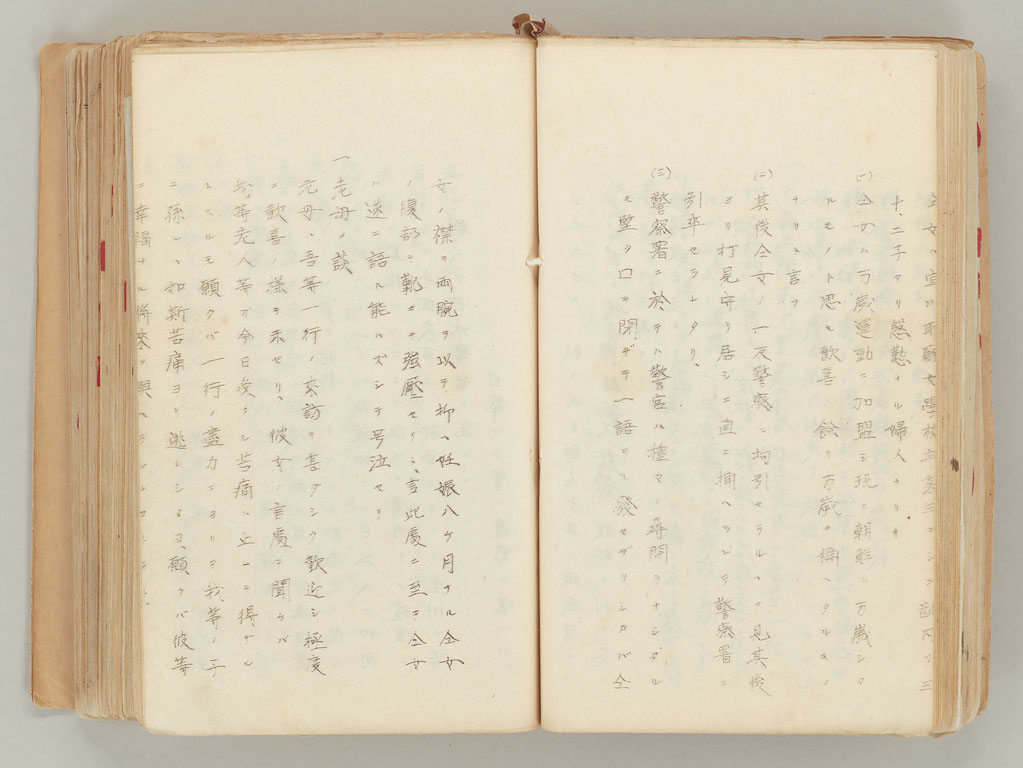 仝女ハ
十、二子アリ慇懃ナル婦人ナリキ
(一) 仝女ハ万歳運動ニ加盟シ現ニ朝鮮ハ万歳シタ
ルモノト思セ歓喜ノ餘リ万歳ヲ稱ヘタルモノ
ナリト言フ
(二) 其後仝女ノ一友警察ニ拘引セラルヽヲ見其後
ヨリ打見守リ居シニ直ニ捕ヘラレテ警察署ニ
引卒セラレタリ、
(三) 警察署ニ於テハ警官ハ種々ノ尋問ヲナシタル
モ堅ク口ヲ閉ヂテ一語ヲ發セザリシカバ仝
女ノ襟ヲ両腕ヲ以テ抑ヘ妊娠八ケ月ナル仝女
ノ腹部ニ靴ニテ強壓セリト、言此處ニ至テ仝女
ハ遂ニ語ル能ハズシテ号泣セリ
一 老母ノ談
老母ハ吾等一行ノ来訪ヲ甚ダシク歓迎シ極度
ニ歓喜ノ漾ヲ示セリ、彼女ノ言處ニ聞ケバ
我等老人等ガ今日受ケシ苦痛ハ止ムヲ得ザル
ニスルモ願クバ一行ノ盡力ニヨリテ我等ノ子
ニ孫ニハ如斯苦痛ヨリ逃レシメヨ、願クバ彼等
ニ幸福ナル将来ヲ與ヘ